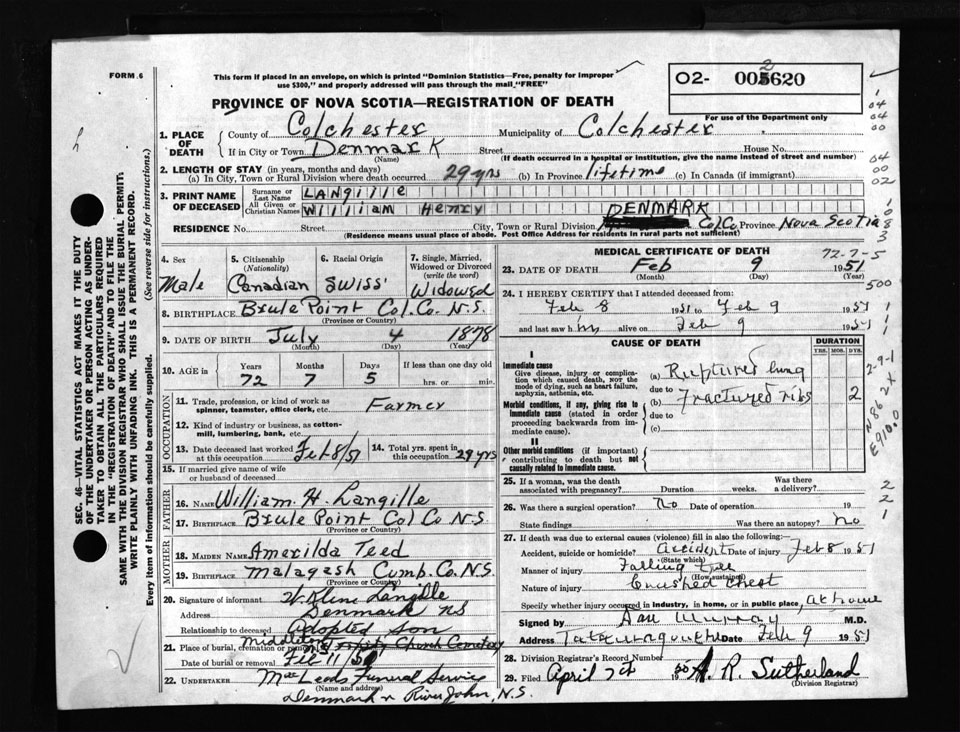 FORM 6
This form if placed in an envelope, on which is printed "Dominion Statistics—Free, penalty for improper
use $300," and properly addressed will pass through the mail "FREE"
O2- 005620
2
For use of the Department only
PROVINCE OF NOVA SCOTIA—REGISTRATION OF DEATH
1. PLACE OF DEATH
County of Colchester Municipality of Colchester
If in City or Town Denmark Street House No.
(Name) (If death occurred in a hospital or institution, give the name instead of street and number)
2. LENGTH OF STAY (in years, months and days)
(a) In City, Town or Rural Division where death occurred 29 yrs (b) In Province lifetime (c) In Canada (if immigrant)
3. PRINT NAME OF DECEASED
Surname or Last Name LANGILLE
All Given or Christian Names WILLIAM HENRY
RESIDENCE No. Street City, Town or Rural Division DENMARK Col Co Province Nova Scotia
(Residence means usual place of abode. Post Office Address for residents in rural parts not sufficient)
4. Sex Male
5. Citizenship (Nationality) Canadian
6. Racial Origin Swiss
7. Single, Married, Widowed or Divorced (write the word) Widowed
8. BIRTHPLACE Brule Point Col. Co. N.S.
(Province or Country)
9. DATE OF BIRTH July 4 1878
(Month) (Day) (Year)
10. AGE in Years Months Days If less than one day old
72 7 5 hrs. or min.
OCCUPATION
11. Trade, profession, or kind of work as spinner, teamster, office clerk, etc. Farmer
12. Kind of industry or business, as cotton-mill, lumbering, bank, etc.
13. Date deceased last worked at this occupation Feb 8/51
14. Total yrs. spent in this occupation 29 yrs
15. If married give name of wife or husband of deceased
FATHER
16. NAME William H. Langille
17. BIRTHPLACE Brule Point Col Co N.S.
(Province or Country)
MOTHER
18. MAIDEN NAME Amerilda Teed
19. BIRTHPLACE Malagash Cumb. Co. N.S.
(Province or Country)
20. Signature of informant W. Kline Langille
Address Denmark NS
Relationship to deceased Adopted Son
21. Place of burial, cremation or removal Church Cemetery
Date of burial or removal Feb 11/
22. UNDERTAKER MacLeods Funeral Service
(Name and address)
Denmark River John, N.S.
MEDICAL CERTIFICATE OF DEATH
23. DATE OF DEATH Feb 9 1951
(Month) (Day) (Year)
24. I HEREBY CERTIFY that I attended deceased from:
Feb 8 1951 to Feb 9 1951
and last saw him alive on Feb 9 1951
CAUSE OF DEATH
DURATION
YRS. MOS. DYS.
I
Immediate cause
Give disease, injury or complication which caused death, NOT the mode of dying, such as heart failure, asphyxia, asthenia, etc.
(a) Ruptured lung
due to
(b) Fractured ribs 2
Morbid conditions, if any, giving rise to immediate cause (stated in order proceeding backwards from immediate cause).
due to
(c)
II
Other morbid conditions (if important) contributing to death but not causally related to immediate cause.
25. If a woman, was the death associated with pregnancy? Duration weeks. Was there a delivery?
26. Was there a surgical operation? No Date of operation 19
State findings Was there an autopsy? no
27. If death was due to external causes (violence) fill in also the following:—
Accident, suicide or homicide? accident Date of injury Feb 8 1951
(State which)
Manner of injury Falling tree
(How sustained)
Nature of injury Crushed chest
Specify whether injury occurred in industry, in home, or in public place, at home
Signed by Dan Murray M.D.
Address Tatamagouche Date Feb 9 1951
28. Division Registrar's Record Number
29. Filed April 19 A. R. Sutherland
(Division Registrar)
72-7-5
500
2-9-1
N862X
E910.0
SEC. 46—VITAL STATISTICS ACT MAKES IT THE DUTY
OF THE UNDERTAKER OR PERSON ACTING AS UNDERTAKER
TO OBTAIN ALL THE PARTICULARS REQUIRED
IN THE "REGISTRATION OF DEATH" AND TO FILE THE
SAME WITH THE DIVISION REGISTRAR WHO SHALL ISSUE THE BURIAL PERMIT.
WRITE PLAINLY WITH UNFADING INK. THIS IS A PERMANENT RECORD.
Every item of information should be carefully supplied. (See reverse side for instructions.)